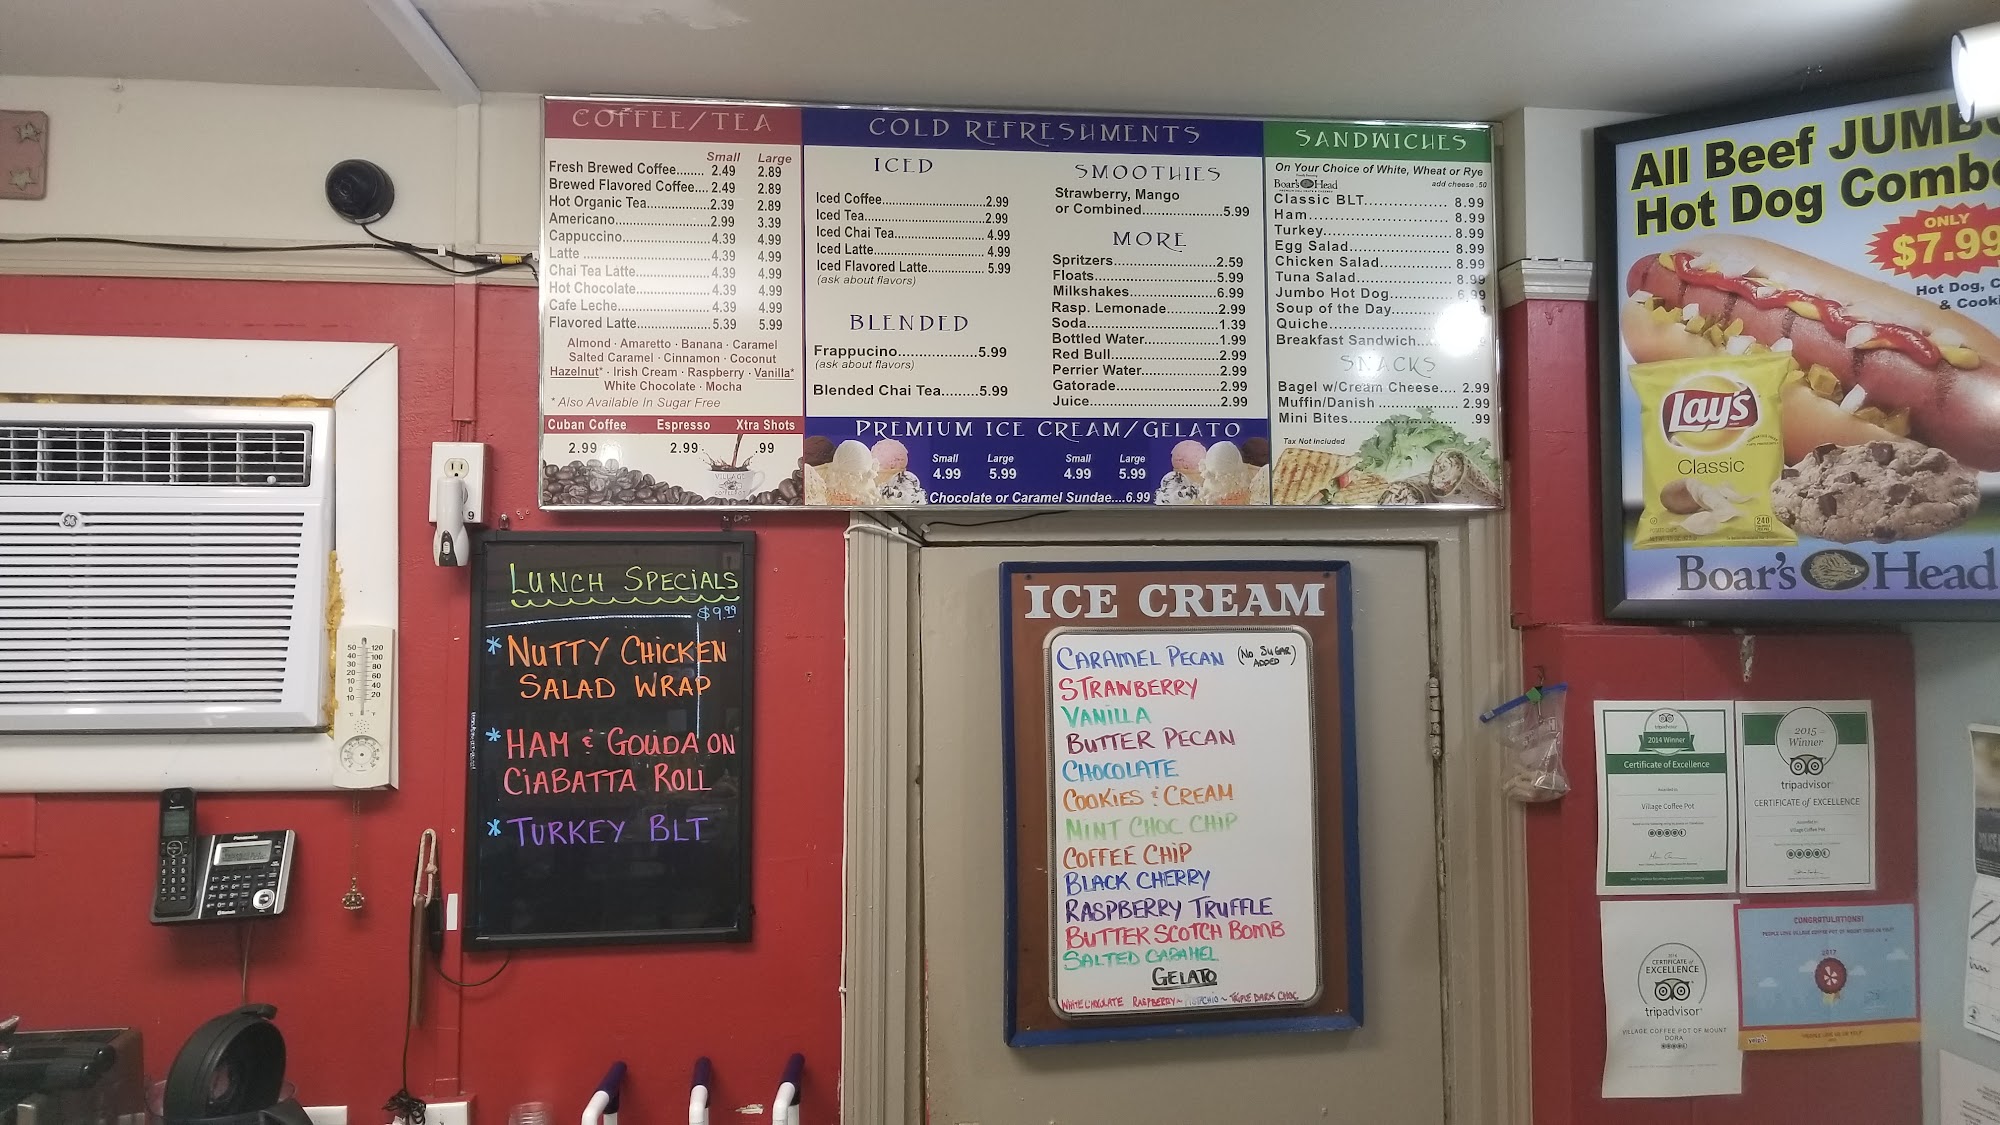 COFFEE/TEA
Small Large
Fresh Brewed Coffee........ 2.49 2.89
Brewed Flavored Coffee.... 2.49 2.89
Hot Organic Tea............... 2.39 2.89
Americano...................... 2.99 3.39
Cappuccino..................... 4.39 4.99
Latte ............................... 4.39 4.99
Chai Tea Latte.................. 4.39 4.99
Hot Chocolate.................. 4.39 4.99
Cafe Leche...................... 4.39 4.99
Flavored Latte.................. 5.39 5.99
Almond · Amaretto · Banana · Caramel
Salted Caramel · Cinnamon · Coconut
Hazelnut* · Irish Cream · Raspberry · Vanilla*
White Chocolate · Mocha
* Also Available In Sugar Free
Cuban Coffee Espresso Xtra Shots
2.99 2.99 .99
VILLAGE
COFFEE POT
COLD REFRESHMENTS
ICED
Iced Coffee..........................2.99
Iced Tea..............................2.99
Iced Chai Tea....................... 4.99
Iced Latte............................ 4.99
Iced Flavored Latte............... 5.99
(ask about flavors)
BLENDED
Frappucino....................5.99
(ask about flavors)
Blended Chai Tea.........5.99
SMOOTHIES
Strawberry, Mango
or Combined....................5.99
MORE
Spritzers...................2.59
Floats.......................5.99
Milkshakes................6.99
Rasp. Lemonade............2.99
Soda.........................1.39
Bottled Water..............1.99
Red Bull.....................2.99
Perrier Water...............2.99
Gatorade....................2.99
Juice.........................2.99
PREMIUM ICE CREAM/GELATO
Small Large Small Large
4.99 5.99 4.99 5.99
Chocolate or Caramel Sundae....6.99
SANDWICHES
On Your Choice of White, Wheat or Rye
Boar's Head
add cheese .50
Classic BLT................. 8.99
Ham........................... 8.99
Turkey........................ 8.99
Egg Salad.................... 8.99
Chicken Salad.............. 8.99
Tuna Salad.................. 8.99
Jumbo Hot Dog............ 6.99
Soup of the Day............
Quiche........................
Breakfast Sandwich.....
SNACKS
Bagel w/Cream Cheese.... 2.99
Muffin/Danish ................ 2.99
Mini Bites....................... .99
Tax Not Included
All Beef JUMB
Hot Dog Combo
ONLY
$7.99
Hot Dog, C
& Cooki
Lay's
Classic
240
Boar's Head
9
LUNCH SPECIALS
$9.99
* NUTTY CHICKEN
SALAD WRAP
* HAM & GOUDA ON
CIABATTA ROLL
* TURKEY BLT
50 120
40 100
30 80
20 60
10 40
0 20
10
Panasonic
ICE CREAM
CARAMEL PECAN (NO SUGAR ADDED)
STRAWBERRY
VANILLA
BUTTER PECAN
CHOCOLATE
COOKIES & CREAM
MINT CHOC CHIP
COFFEE CHIP
BLACK CHERRY
RASPBERRY TRUFFLE
BUTTERSCOTCH BOMB
SALTED CARAMEL
GELATO
WHITE CHOCOLATE RASPBERRY~ PISTACHIO ~ TRIPLE DARK CHOC
tripadvisor
2014 Winner
Certificate of Excellence
Village Coffee Pot
2015
Winner
tripadvisor
CERTIFICATE of EXCELLENCE
Village Coffee Pot
CERTIFICATE of
EXCELLENCE
tripadvisor
VILLAGE COFFEE POT OF MOUNT
DORA
CONGRATULATIONS!
PEOPLE LOVE VILLAGE COFFEE POT OF MOUNT DORA ON YELP!
2017
yelp
"PEOPLE LOVE US ON YELP"